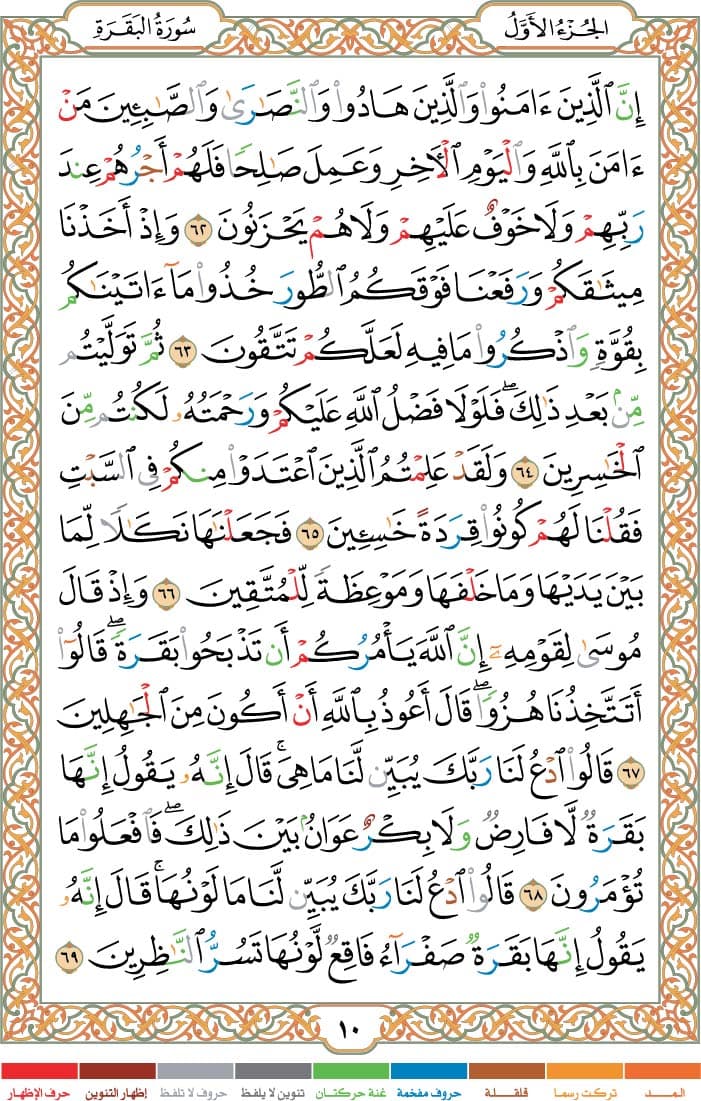 الجُزْءُ الأَوَّلُ
سُورَةُ البَقَرَةِ
إِنَّ الَّذِينَ ءَامَنُوا۟ وَالَّذِينَ هَادُوا۟ وَالنَّصَٰرَىٰ وَالصَّٰبِـِٔينَ مَنْ
ءَامَنَ بِاللَّهِ وَالْيَوْمِ الْـَٔاخِرِ وَعَمِلَ صَٰلِحًا فَلَهُمْ أَجْرُهُمْ عِندَ
رَبِّهِمْ وَلَا خَوْفٌ عَلَيْهِمْ وَلَا هُمْ يَحْزَنُونَ ٦٢ وَإِذْ أَخَذْنَا
مِيثَٰقَكُمْ وَرَفَعْنَا فَوْقَكُمُ الطُّورَ خُذُوا۟ مَآ ءَاتَيْنَٰكُم
بِقُوَّةٍ وَاذْكُرُوا۟ مَا فِيهِ لَعَلَّكُمْ تَتَّقُونَ ٦٣ ثُمَّ تَوَلَّيْتُم
مِّنۢ بَعْدِ ذَٰلِكَ ۖ فَلَوْلَا فَضْلُ اللَّهِ عَلَيْكُمْ وَرَحْمَتُهُۥ لَكُنتُم مِّنَ
الْخَٰسِرِينَ ٦٤ وَلَقَدْ عَلِمْتُمُ الَّذِينَ اعْتَدَوْا۟ مِنكُمْ فِى السَّبْتِ
فَقُلْنَا لَهُمْ كُونُوا۟ قِرَدَةً خَٰسِـِٔينَ ٦٥ فَجَعَلْنَٰهَا نَكَٰلًا لِّمَا
بَيْنَ يَدَيْهَا وَمَا خَلْفَهَا وَمَوْعِظَةً لِّلْمُتَّقِينَ ٦٦ وَإِذْ قَالَ
مُوسَىٰ لِقَوْمِهِۦٓ إِنَّ اللَّهَ يَأْمُرُكُمْ أَن تَذْبَحُوا۟ بَقَرَةً ۖ قَالُوٓا۟
أَتَتَّخِذُنَا هُزُوًا ۖ قَالَ أَعُوذُ بِاللَّهِ أَنْ أَكُونَ مِنَ الْجَٰهِلِينَ
٦٧ قَالُوا۟ ادْعُ لَنَا رَبَّكَ يُبَيِّن لَّنَا مَا هِىَ ۚ قَالَ إِنَّهُۥ يَقُولُ إِنَّهَا
بَقَرَةٌ لَّا فَارِضٌ وَلَا بِكْرٌ عَوَانٌۢ بَيْنَ ذَٰلِكَ ۖ فَافْعَلُوا۟ مَا
تُؤْمَرُونَ ٦٨ قَالُوا۟ ادْعُ لَنَا رَبَّكَ يُبَيِّن لَّنَا مَا لَوْنُهَا ۚ قَالَ إِنَّهُۥ
يَقُولُ إِنَّهَا بَقَرَةٌ صَفْرَآءُ فَاقِعٌ لَّوْنُهَا تَسُرُّ النَّٰظِرِينَ ٦٩
١٠
المـــد تركت رسما قلقـــلة حروف مفخمة غنة حركتـان تنوين لا يلفظ حروف لا تلفظ إظهار التنوين حرف الإظهار